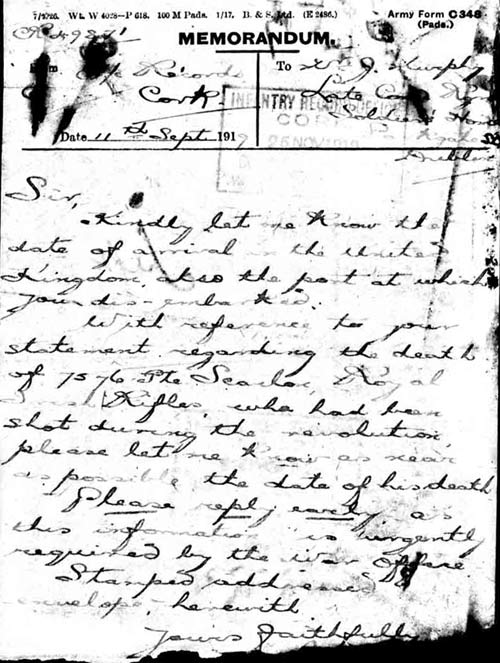 7/2726. Wt. W 4028—P 618. 100 M Pads. 1/17. B. & S. Ltd. (E 2486.) Army Form C 348
(Pads.)
MEMORANDUM.
From Records
Cork.
To J. Murphy
Late
Soldiers
Dublin
INFANTRY RECORD
CORK
25 NOV 1919
Date 11th Sept. 191
Sir,
Kindly let me know the
date of arrival in the United
Kingdom, also the port at which
you dis-embarked.
With reference to your
statement regarding the death
of 7576 Pte Scanlon Royal
Irish Rifles, who had been
shot during the revolution,
please let me know as near
as possible the date of his death
Please reply early as
this information is urgently
required by the War Office.
Stamped addressed
envelope herewith
Yours faithfully